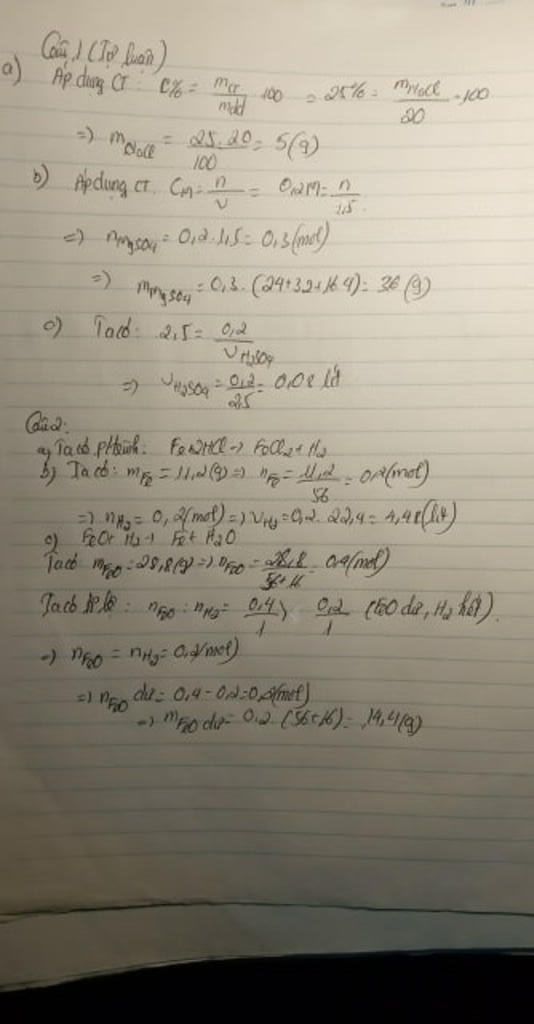 Câu 1 (Tự luận)
a) Áp dụng CT: C% = mct/mdd . 100 => 25% = mNaCl/20 . 100
=> mNaCl = 25.20/100 = 5(g)
b) Áp dụng CT. CM = n/V = 0,2M = n/1,5.
=> nMgSO4 = 0,2.1,5 = 0,3(mol)
=> mMgSO4 = 0,3.(24+32+16.4) = 36(g)
c) Ta có: 2,5 = 0,2/VH2SO4
=> VH2SO4 = 0,2/2,5 = 0,08 lít
Câu 2:
a) Ta có pt hình: Fe+2HCl -> FeCl2 + H2
b) Ta có: mFe = 11,2(g) => nFe = 11,2/56 = 0,2(mol)
=> nH2 = 0,2(mol) => VH2 = 0,2.22,4 = 4,48(lít)
c) FeO + H2 -> Fe + H2O
Ta có mFeO = 28,8(g) => nFeO = 28,8/56+16 = 0,4(mol)
Ta có tỉ lệ: nFeO : nH2 = 0,4/1 > 0,2/1 (FeO dư, H2 hết).
=> nFeO = nH2 = 0,2(mol)
=> nFeO dư = 0,4-0,2=0,2(mol)
=> mFeO dư = 0,2.(56+16) = 14,4(g)